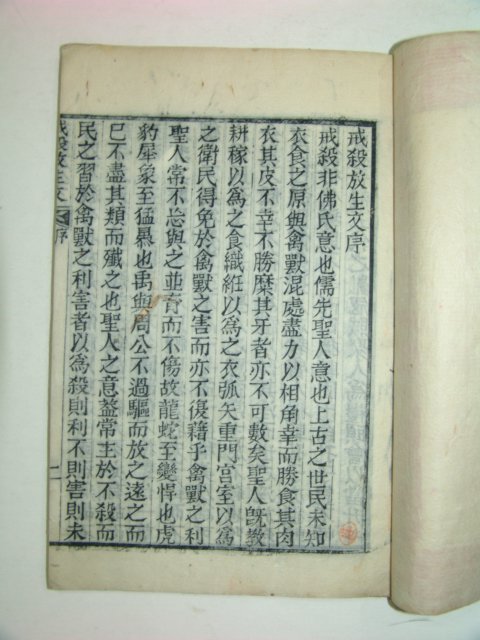 戒殺放生文序
戒殺非佛氏意也儒先聖人意也上古之世民未知
衣食之原與禽獸混處盡力以相角幸而勝食其肉
衣其皮不幸不勝糜其牙者亦不可數矣聖人旣教
耕稼以爲之食織絍以爲之衣弧矢重門宮室以爲
之衛民得免於禽獸之害而亦不復藉乎禽獸之利
聖人常不忘與之並育而不傷故龍蛇至變悍也虎
豹犀象至猛暴也禹與周公不過驅而放之遠之而
已不盡其類而殲之也聖人之意葢常主於不殺而
民之習於禽獸之利害者以爲殺則利不則害則未
戒殺放生文 序 一